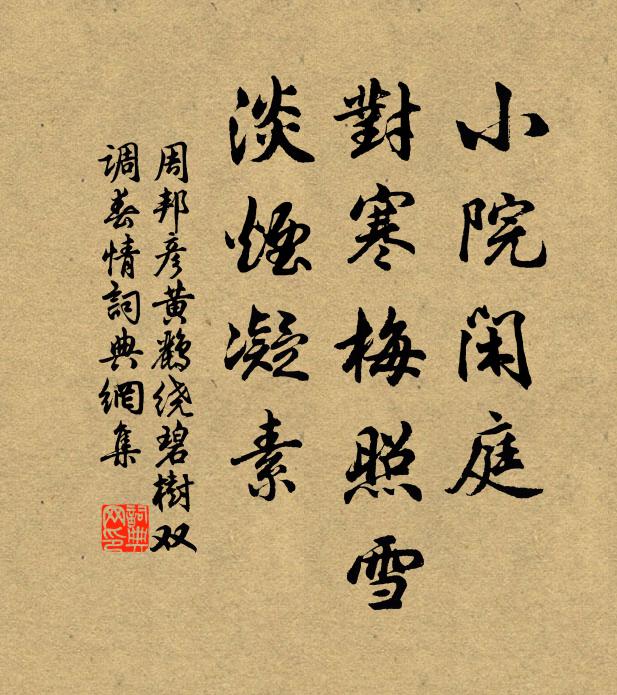 小院闲庭
對寒梅照雪
淡煙凝素
周邦彦黄鹂绕碧樹双
调春情詞典網集
詞典网印